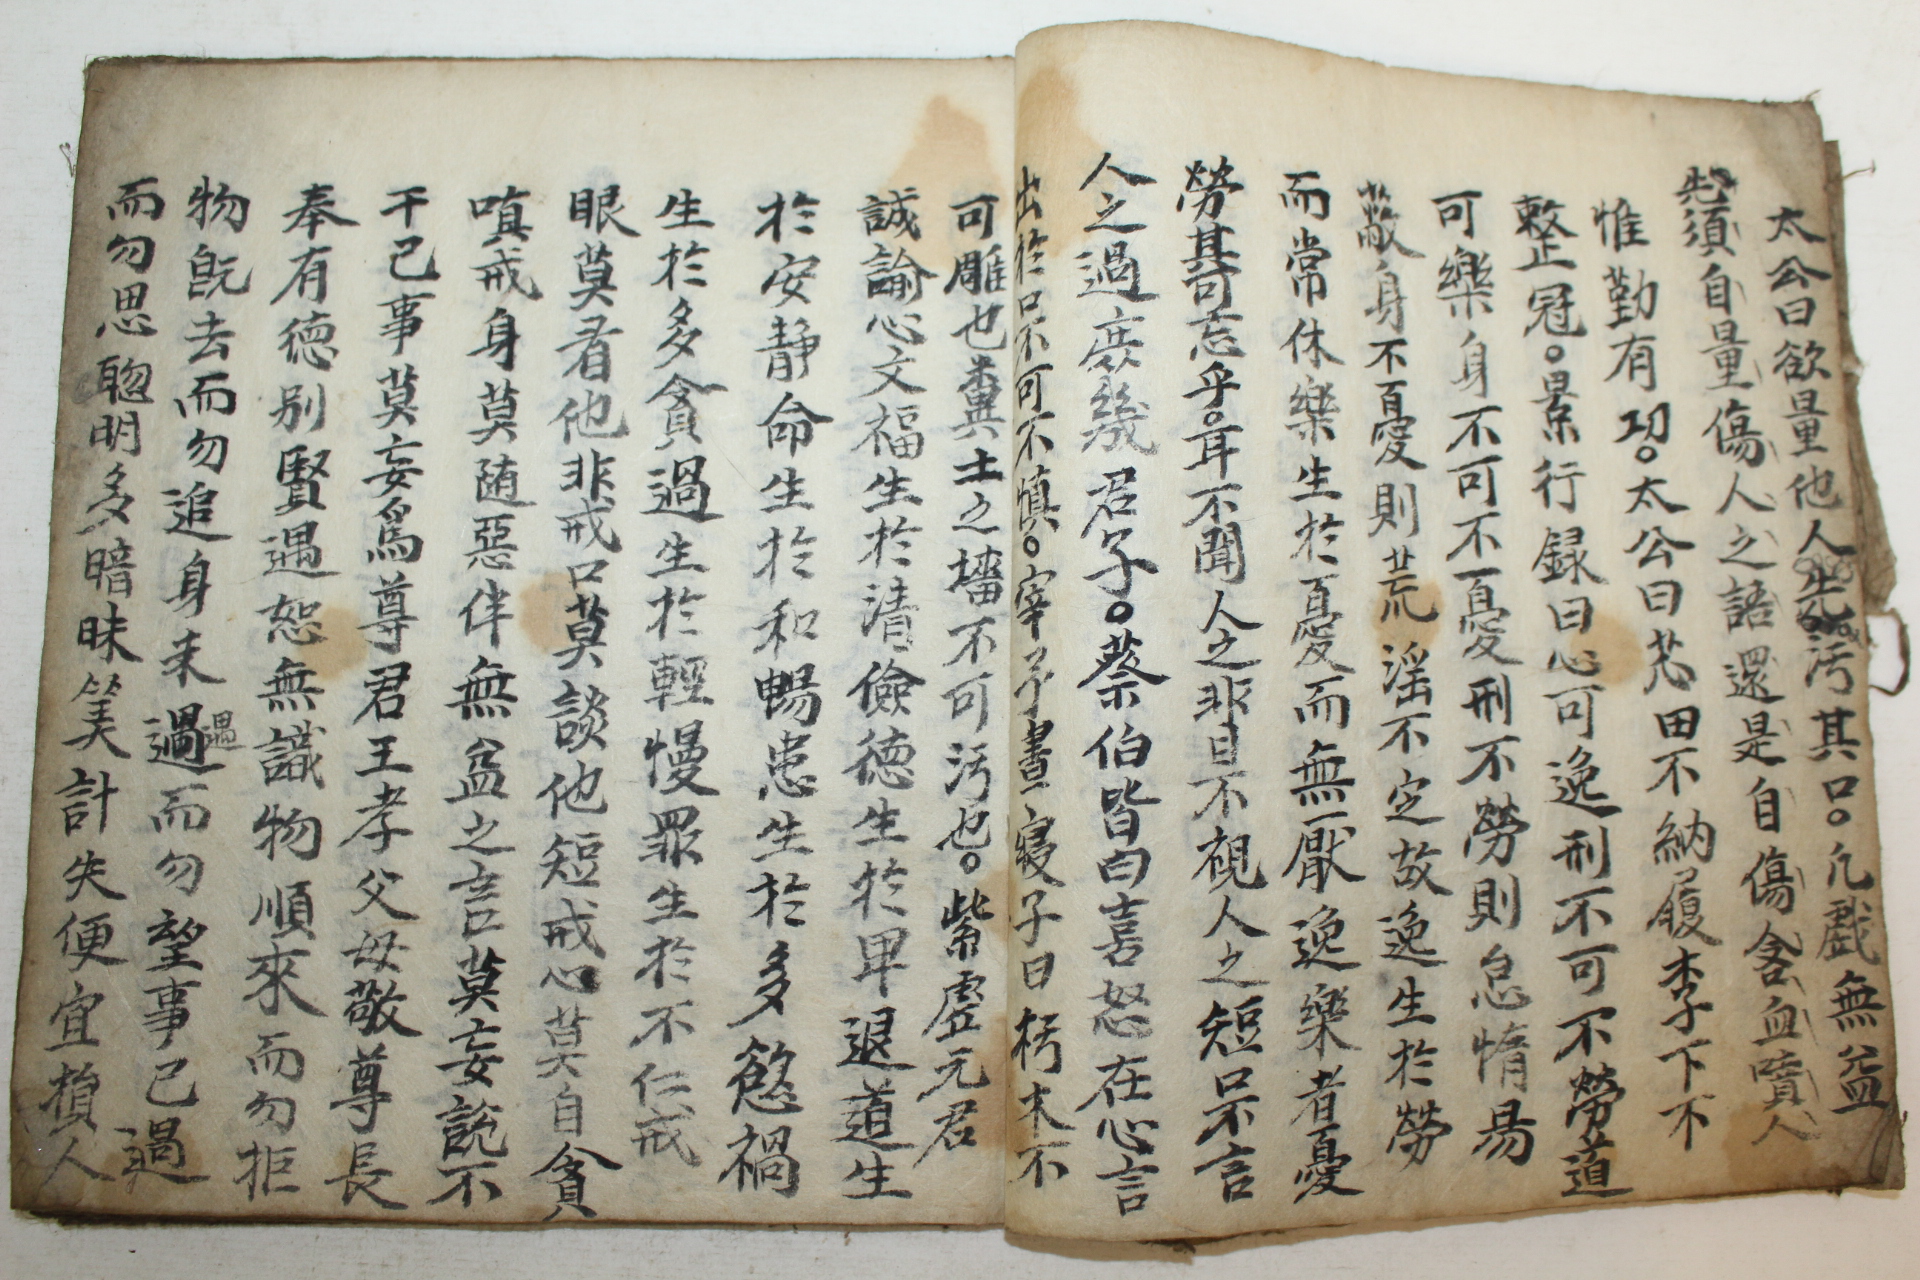 太公曰欲量他人先汚其口。凢戲無益
先須自量傷人之語還是自傷含血噴人
惟勤有功。太公曰苽田不納履李下不
整冠。景行録曰心可逸刑不可不勞道
可樂身不可不憂刑不勞則怠惰易
蔽身不憂則荒滛不定故逸生於勞
而常休樂生於憂而無厭逸樂者憂
勞其可忘乎。耳不聞人之非目不視人之短口不言
人之過庶幾君子。蔡伯皆曰喜怒在心言
出於口不可不慎。宰予晝寢子曰朽木不
可雕也糞土之墻不可汚也。紫虛元君
誠諭心文福生於清儉德生於卑退道生
於安静命生於和暢患生於多慾禍
生於多貪過生於輕慢罪生於不仁戒
眼莫看他非戒口莫談他短戒心莫自貪
嗔戒身莫随惡伴無益之言莫妄説不
干己事莫妄爲尊君王孝父母敬尊長
奉有德别賢遇恕無識物順來而勿拒
物旣去而勿追身未遇遇而勿望事已過
而勿思聰明多暗昧筭計失便宜損人